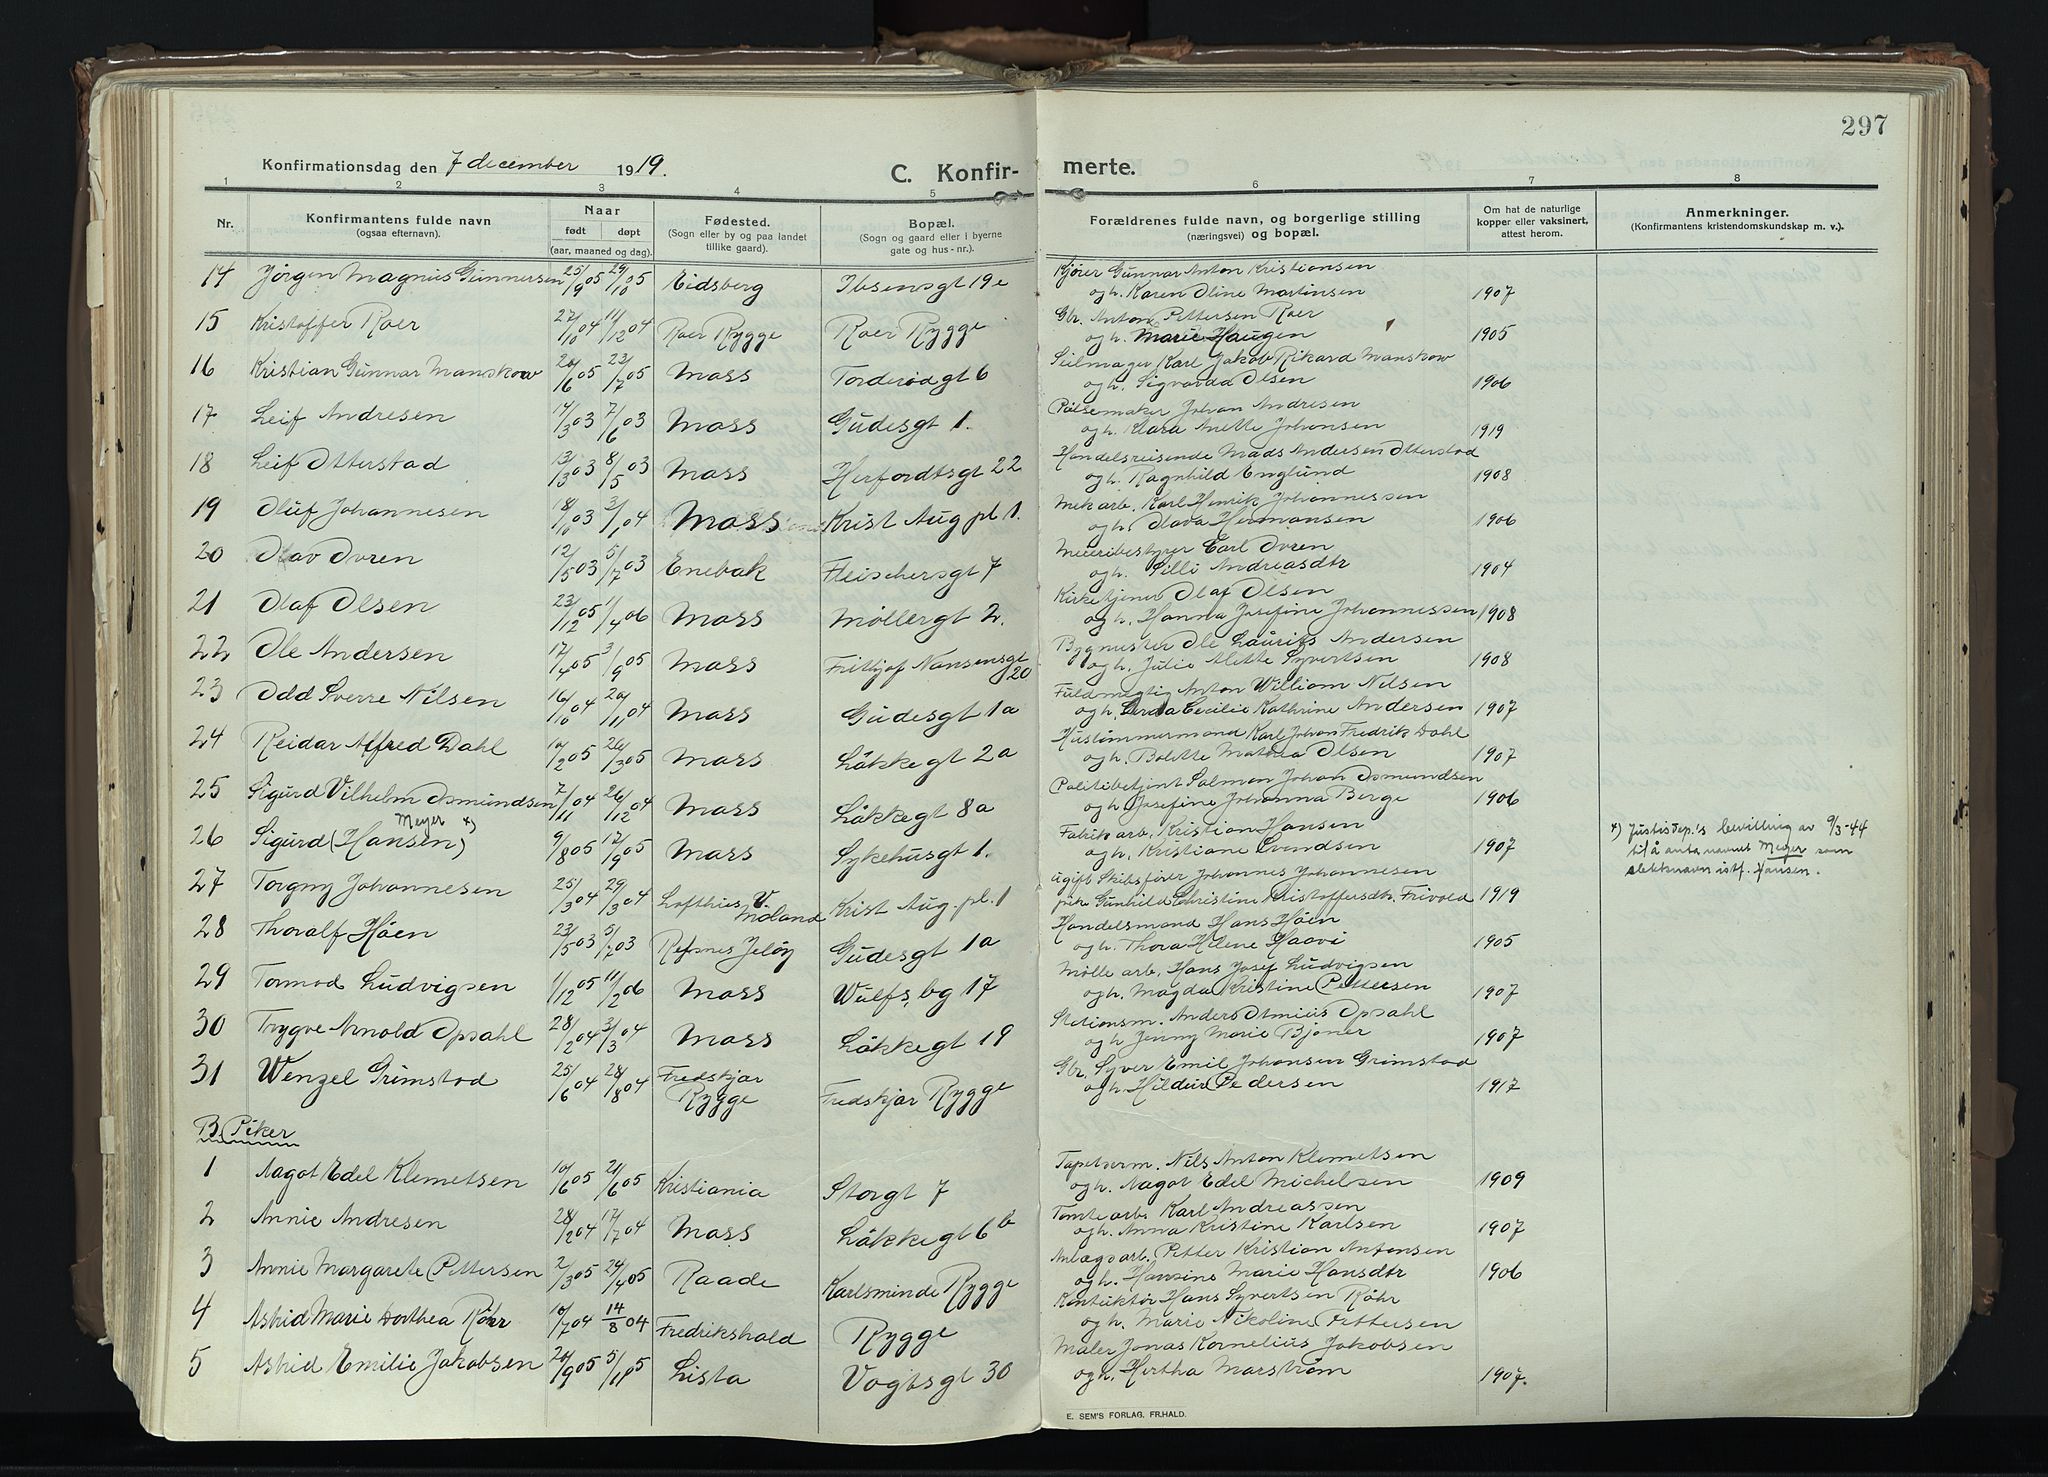 297
Konfirmationsdag den 7 december 1919.
C. Konfir-
merte.
1 2 3 4 5 6 7 8
Nr.
Konfirmantens fulde navn
(ogsaa efternavn).
Naar
født døpt
(aar, maaned og dag).
Fødested.
(Sogn eller by og paa landet
tillike gaard).
Bopæl.
(Sogn og gaard eller i byerne
gate og hus-nr.).
Forældrenes fulde navn, og borgerlige stilling
(næringsvei) og bopæl.
Om hat de naturlige
kopper eller vaksinert,
attest herom.
Anmerkninger.
(Konfirmantens kristendomskundskap m. v.).
14 Jørgen Magnus Gunnersen 25/9 05 29/10 05 Eidsberg Ibsensgt 19e Kjører Gunnar Anton Kristiansen
og h. Karen Oline Martinsen 1907
15 Kristoffer Roer 27/10 04 11/12 04 Roer Rygge Roer Rygge Gbr. Anton Pettersen Roer
og h. Marie Haugen 1905
16 Kristian Gunnar Manskow 20/6 05 23/7 05 Moss Torderødgt 6 Seilmager Karl Jakob Rikard Manskow
og h. Sigvarda Olsen 1906
17 Leif Andresen 14/3 03 7/6 03 Moss Gudesgt 1. Pølsemaker Johan Andresen
og h. Klara Anette Johansen 1919
18 Leif Otterstad 13/3 03 8/5 03 Moss Herfordtsgt 22 Handelsreisende Mads Andersen Otterstad
og h. Ragnhild Englund 1908
19 Oluf Johannesen 18/10 03 3/1 04 Moss Krist Aug pl 1. Mek arb. Karl Henrik Johannessen
og h. Olava Hermansen 1906
20 Olav Ovren 12/5 03 5/7 03 Enebak Fleischersgt 7 Meieribestyrer Carl Ovren
og h. Silli Andreasdtr 1904
21 Olaf Olsen 23/12 05 1/4 06 Moss Møllergt 2. Kirketjener Olaf Olsen
og h. Hanna Josefine Johannessen 1908
22 Ole Andersen 17/4 05 3/9 05 Moss Frithjof Nansensgt 20 Bygmester Ole Laurits Andersen
og h. Julie Alette Syvertsen 1908
23 Odd Sverre Nilsen 16/10 04 20/11 04 Moss Gudesgt 1a Fuldmegtig Anton William Nilsen
og h. Cecilie Kathrine Andersen 1907
24 Reidar Alfred Dahl 10/2 05 26/3 05 Moss Løkkegt 2a Hustømmermand Karl Johan Fredrik Dahl
og h. Bolette Mathea Olsen 1907
25 Sigurd Vilhelm Osmundsen 7/11 04 26/12 04 Moss Løkkegt 8a Politibetjent Salmon Johan Osmundsen
og h. Josefine Johanna Berge 1906
26 Sigurd (Hansen) Meyer x) 9/8 05 17/9 05 Moss Sykehusgt 1. Fabrik arb. Kristian Hansen
og h. Kristiane Svendsen 1907
x) Justisdep.'s bevilling av 9/3-44
til å anta navnet Meyer som
slektnavn istf. Hansen.
27 Torgny Johannesen 25/3 04 29/3 04 Lofthus V. Moland Krist Aug. pl. 1 ugift Skibsfører Johannes Johannesen
pike Gunhild Christine Kristoffersdtr. Frivold 1919
28 Thoralf Høen 23/5 03 5/7 03 Refsnes Jeløy Gudesgt 1a Handelsmand Hans Høen
og h. Thora Helene Haavi 1905
29 Tormod Ludvigsen 1/12 05 11/2 06 Moss Wulfs bg 17 Mølle arb. Hans Josef Ludvigsen
og h. Magda Kristine Pettersen 1907
30 Trygve Arnold Opsahl 28/2 04 3/3 04 Moss Løkkegt 19 Stationsm. Anders Otmius Opsahl
og h Jenny Marie Bjøner 1907
31 Wenzel Grimstad 25/6 04 28/8 04 Fredskjær Rygge Fredskjær Rygge Gbr. Syver Emil Johansen Grimstad
og h. Hildur Pedersen 1917
B. Piker
1 Aagot Edel Klemetsen 10/6 05 21/6 05 Kristiania Storgt 7 Tapetserm. Nils Anton Klemetsen
og h. Aagot Edel Michelsen 1909
2 Annie Andresen 28/2 04 17/7 04 Moss Løkkegt 6b Tomtearb. Karl Andreassen
og h. Anna Kristine Karlsen 1907
3 Annie Margarete Pettersen 2/3 05 24/4 05 Raade Karlsminde Rygge Anlægsarb. Petter Kristian Antonsen
og h. Hansine Marie Hansdtr 1906
4 Astrid Marie Dorthea Röhr 10/7 04 14/8 04 Fredrikshald Rygge Konduktør Hans Syvertsen Röhr
og h. Marie Nikoline Pettersen
5 Astrid Emilie Jakobsen 20/9 05 5/11 05 Lista Vogtsgt 30 Maler Jonas Kornelius Jakobsen
og h. Hertha Marstrøm 1907.
E. SEM'S FORLAG, FR.HALD.